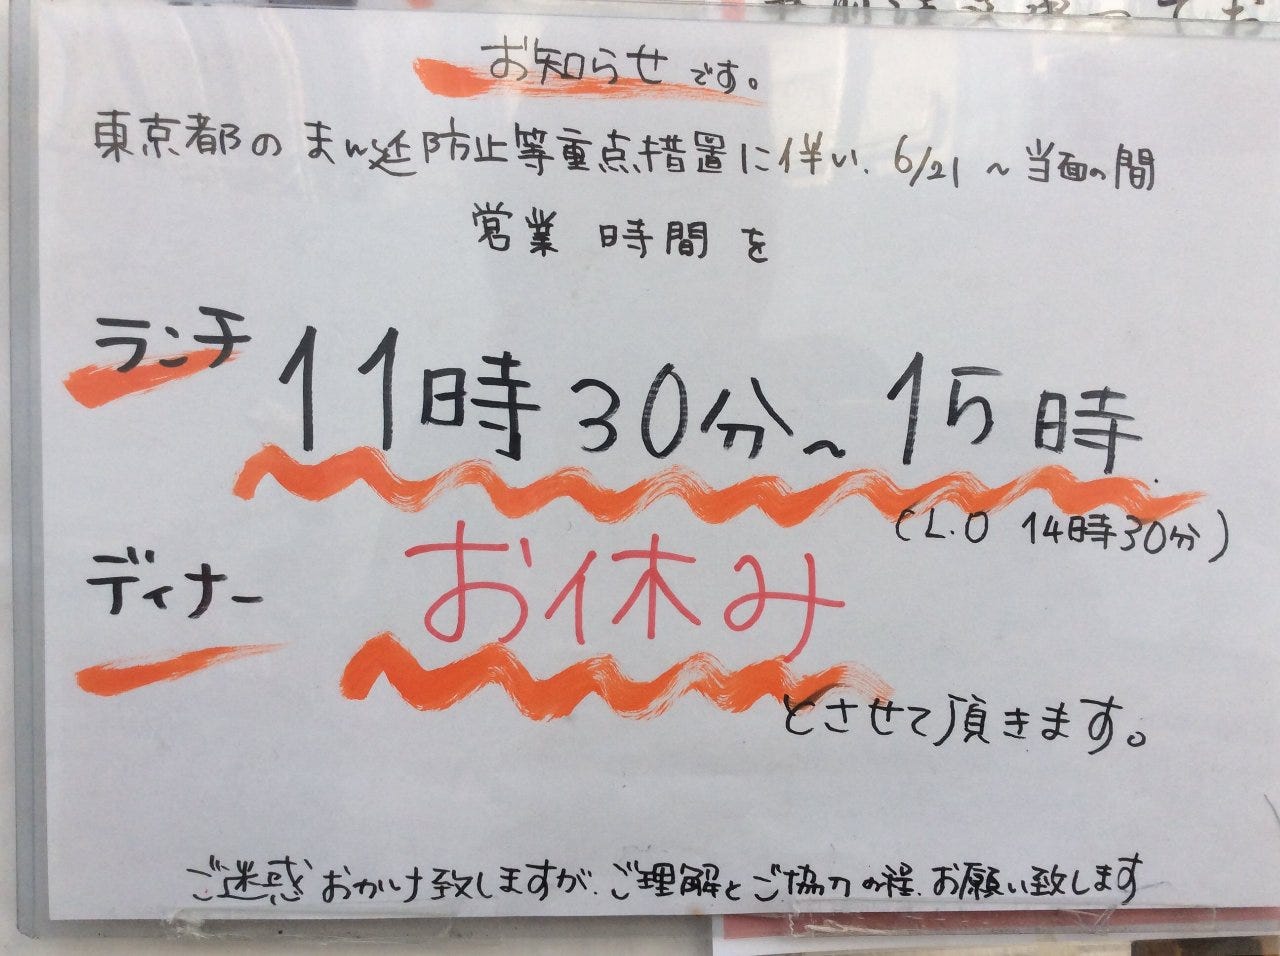 お知らせです。
東京都のまん延防止等重点措置に伴い、6/21～当面の間
営業時間を
ランチ 11時30分～15時
(L.O 14時30分)
ディナー お休み
とさせて頂きます。
ご迷惑おかけ致しますが、ご理解とご協力の程、お願い致します